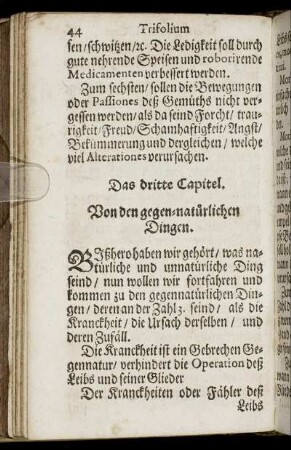 44 Trifolium
sen/schwitzen/ꝛc. Die Ledigkeit soll durch
gute nehrende Speisen und roborirende
Medicamenten verbessert werden.
Zum sechsten/ sollen die Bewegungen
oder Passiones deß Gemüths nicht ver-
gessen werden/ als da seind Forcht/ trau-
rigkeit/Freud/Schamhaftigkeit/Angst/
Bekümmerung und dergleichen/ welche
viel Alterationes verursachen.
Das dritte Capitel.
Von den gegen-natürlichen
Dingen.
BIßhero haben wir gehört/ was na-
türliche und unnatürliche Ding
seind/ nun wollen wir fortfahren und
kommen zu den gegennatürlichen Din-
gen/ deren an der Zahl 3. seind/ als die
Kranckheit/ die Ursach derselben/ und
deren Zufäll.
Die Kranckheit ist ein Gebrechen Ge-
gennatur/ verhindert die Operation deß
Leibs und seiner Glieder
Der Kranckheiten oder Fähler deß
Leibs